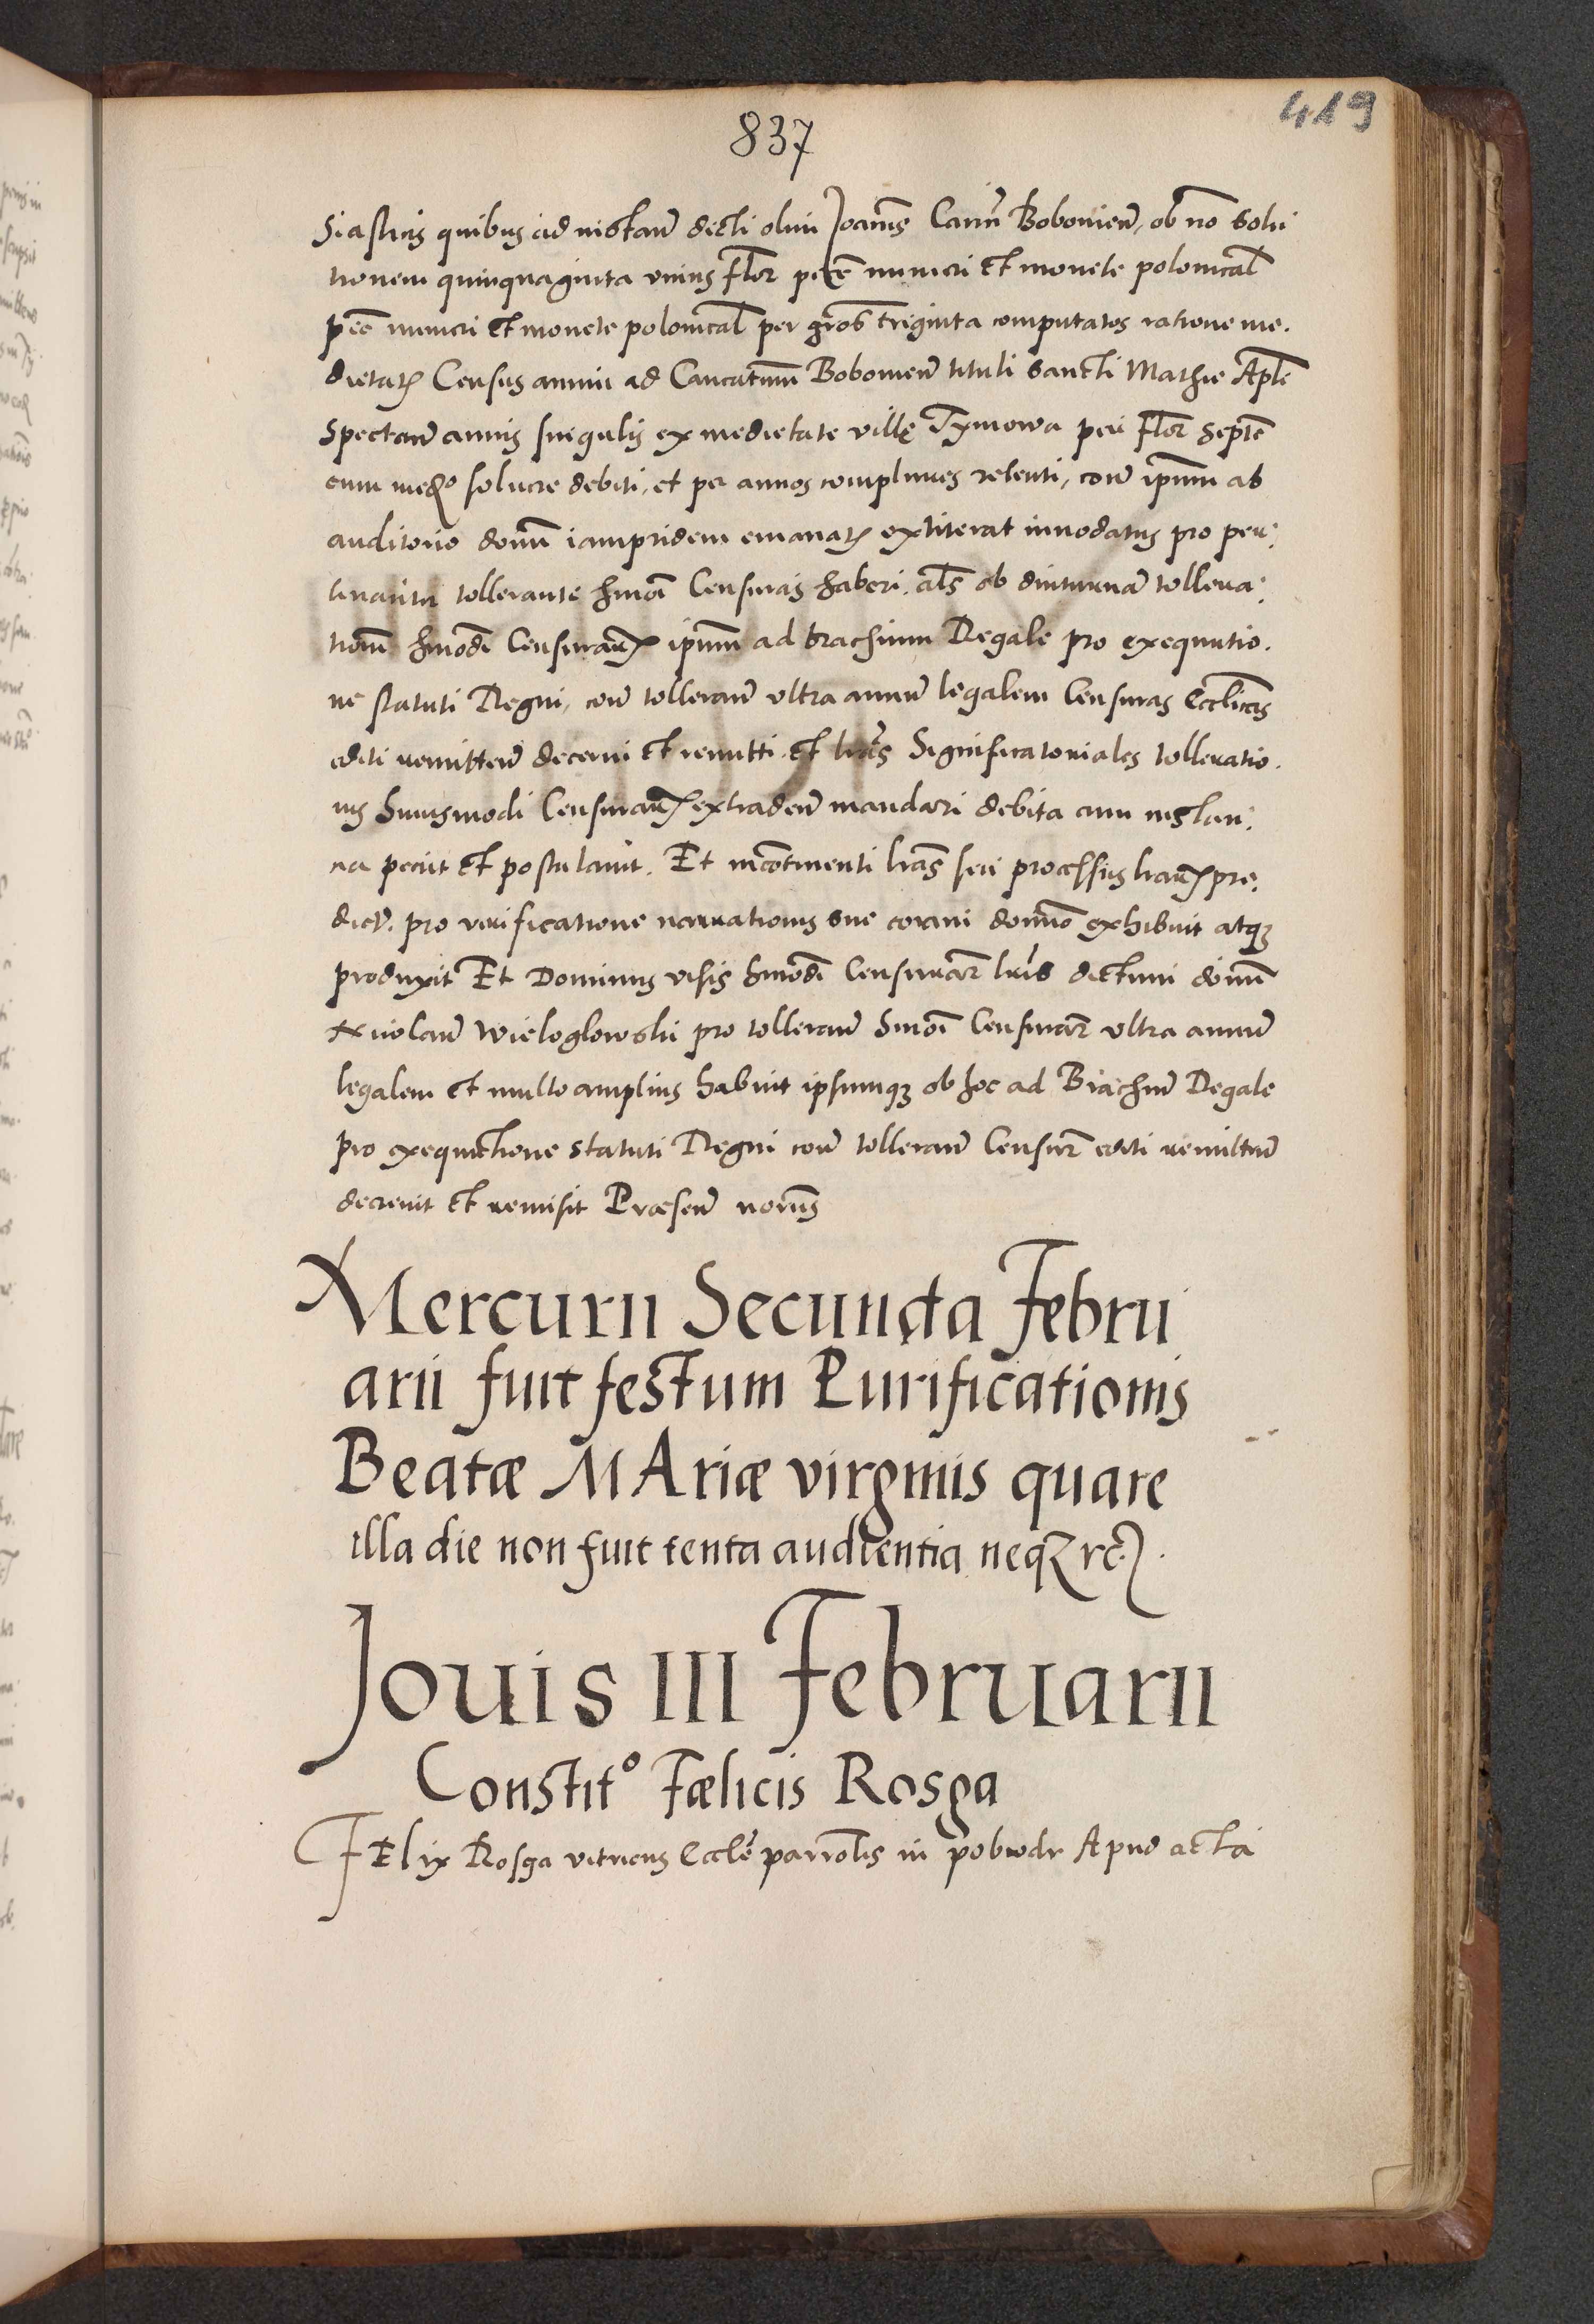 837
419
siasticis quibus ad instan̄ dicti olim Joannis Cano͞n Bobouien̄, ob no͞n solu
tionem quinquaginta vnius flor pec̄ē numeri et monete polonical̄
pec̄ē numeri et monete polonical̄ per gros̄ triginta computatos ratione me.
dietat̄ Census annui ad Canonicatum Bobouien̄ tituli Sancti Mathie Apli
spectan̄ annis singulis ex medietate ville Tymowa per flor septē
cum medio soluere debiti, et per annos complures retenti, con̄ ipsum ab
auditorio domini iampridem emanat̄ extiterat innodatus pro per:
tinaciter tollerante hmōi Censuras haberi. als ob diuturnam tollera:
tionē hmōdi Censurarū ipsum ad brachium Regale pro exequutio.
ne statuti Regni, con̄ tolleran̄ vltra annum legalem Censuras Eccl̄icas
editi remitten̄ decerni et remitti et lr̄as Significatoriales tolleratio.
nis huiusmodi Censurarū extraden̄ mandari debita cum instan:
cia peciit et postulauit. Et incontinenti lr̄as seu processus lrarū pre:
dict̄. pro verificatione narrationis sue coram domino exhibuit atq3
produxit Et Dominus visis hmōdi Censurar̄ lr̄is dictum domin̄
Nicolaum Wieloglowski pro tolleran̄ hmōi Censurar̄ vltra annum
legalem et multo amplius habuit ipsumq3 ob hoc ad Brachium Regale
pro exequutione statuti Regni con̄ tolleran̄ Censur̄ editi remitten̄
decreuit et remisit Præsen̄ notariis
Mercurii Secunda Febru
arii fuit festum Purificationis
Beatæ MAriæ virginis quare
illa die non fuit tenta audientia neq3 rc̄.
Jouis III Februarii
Constit° Fælicis Rosga
FElix Rosga vitricus Eccl̄ē parro͞lis in pobiedr Apud acta